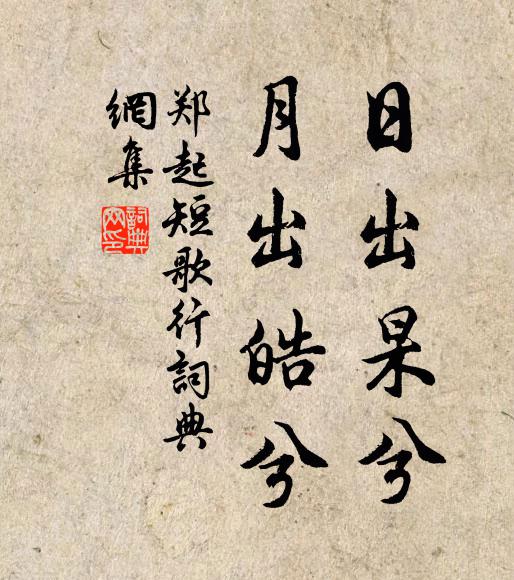 日出杲兮
月出皓兮
郑起短歌行詞典
網集
詞典网印